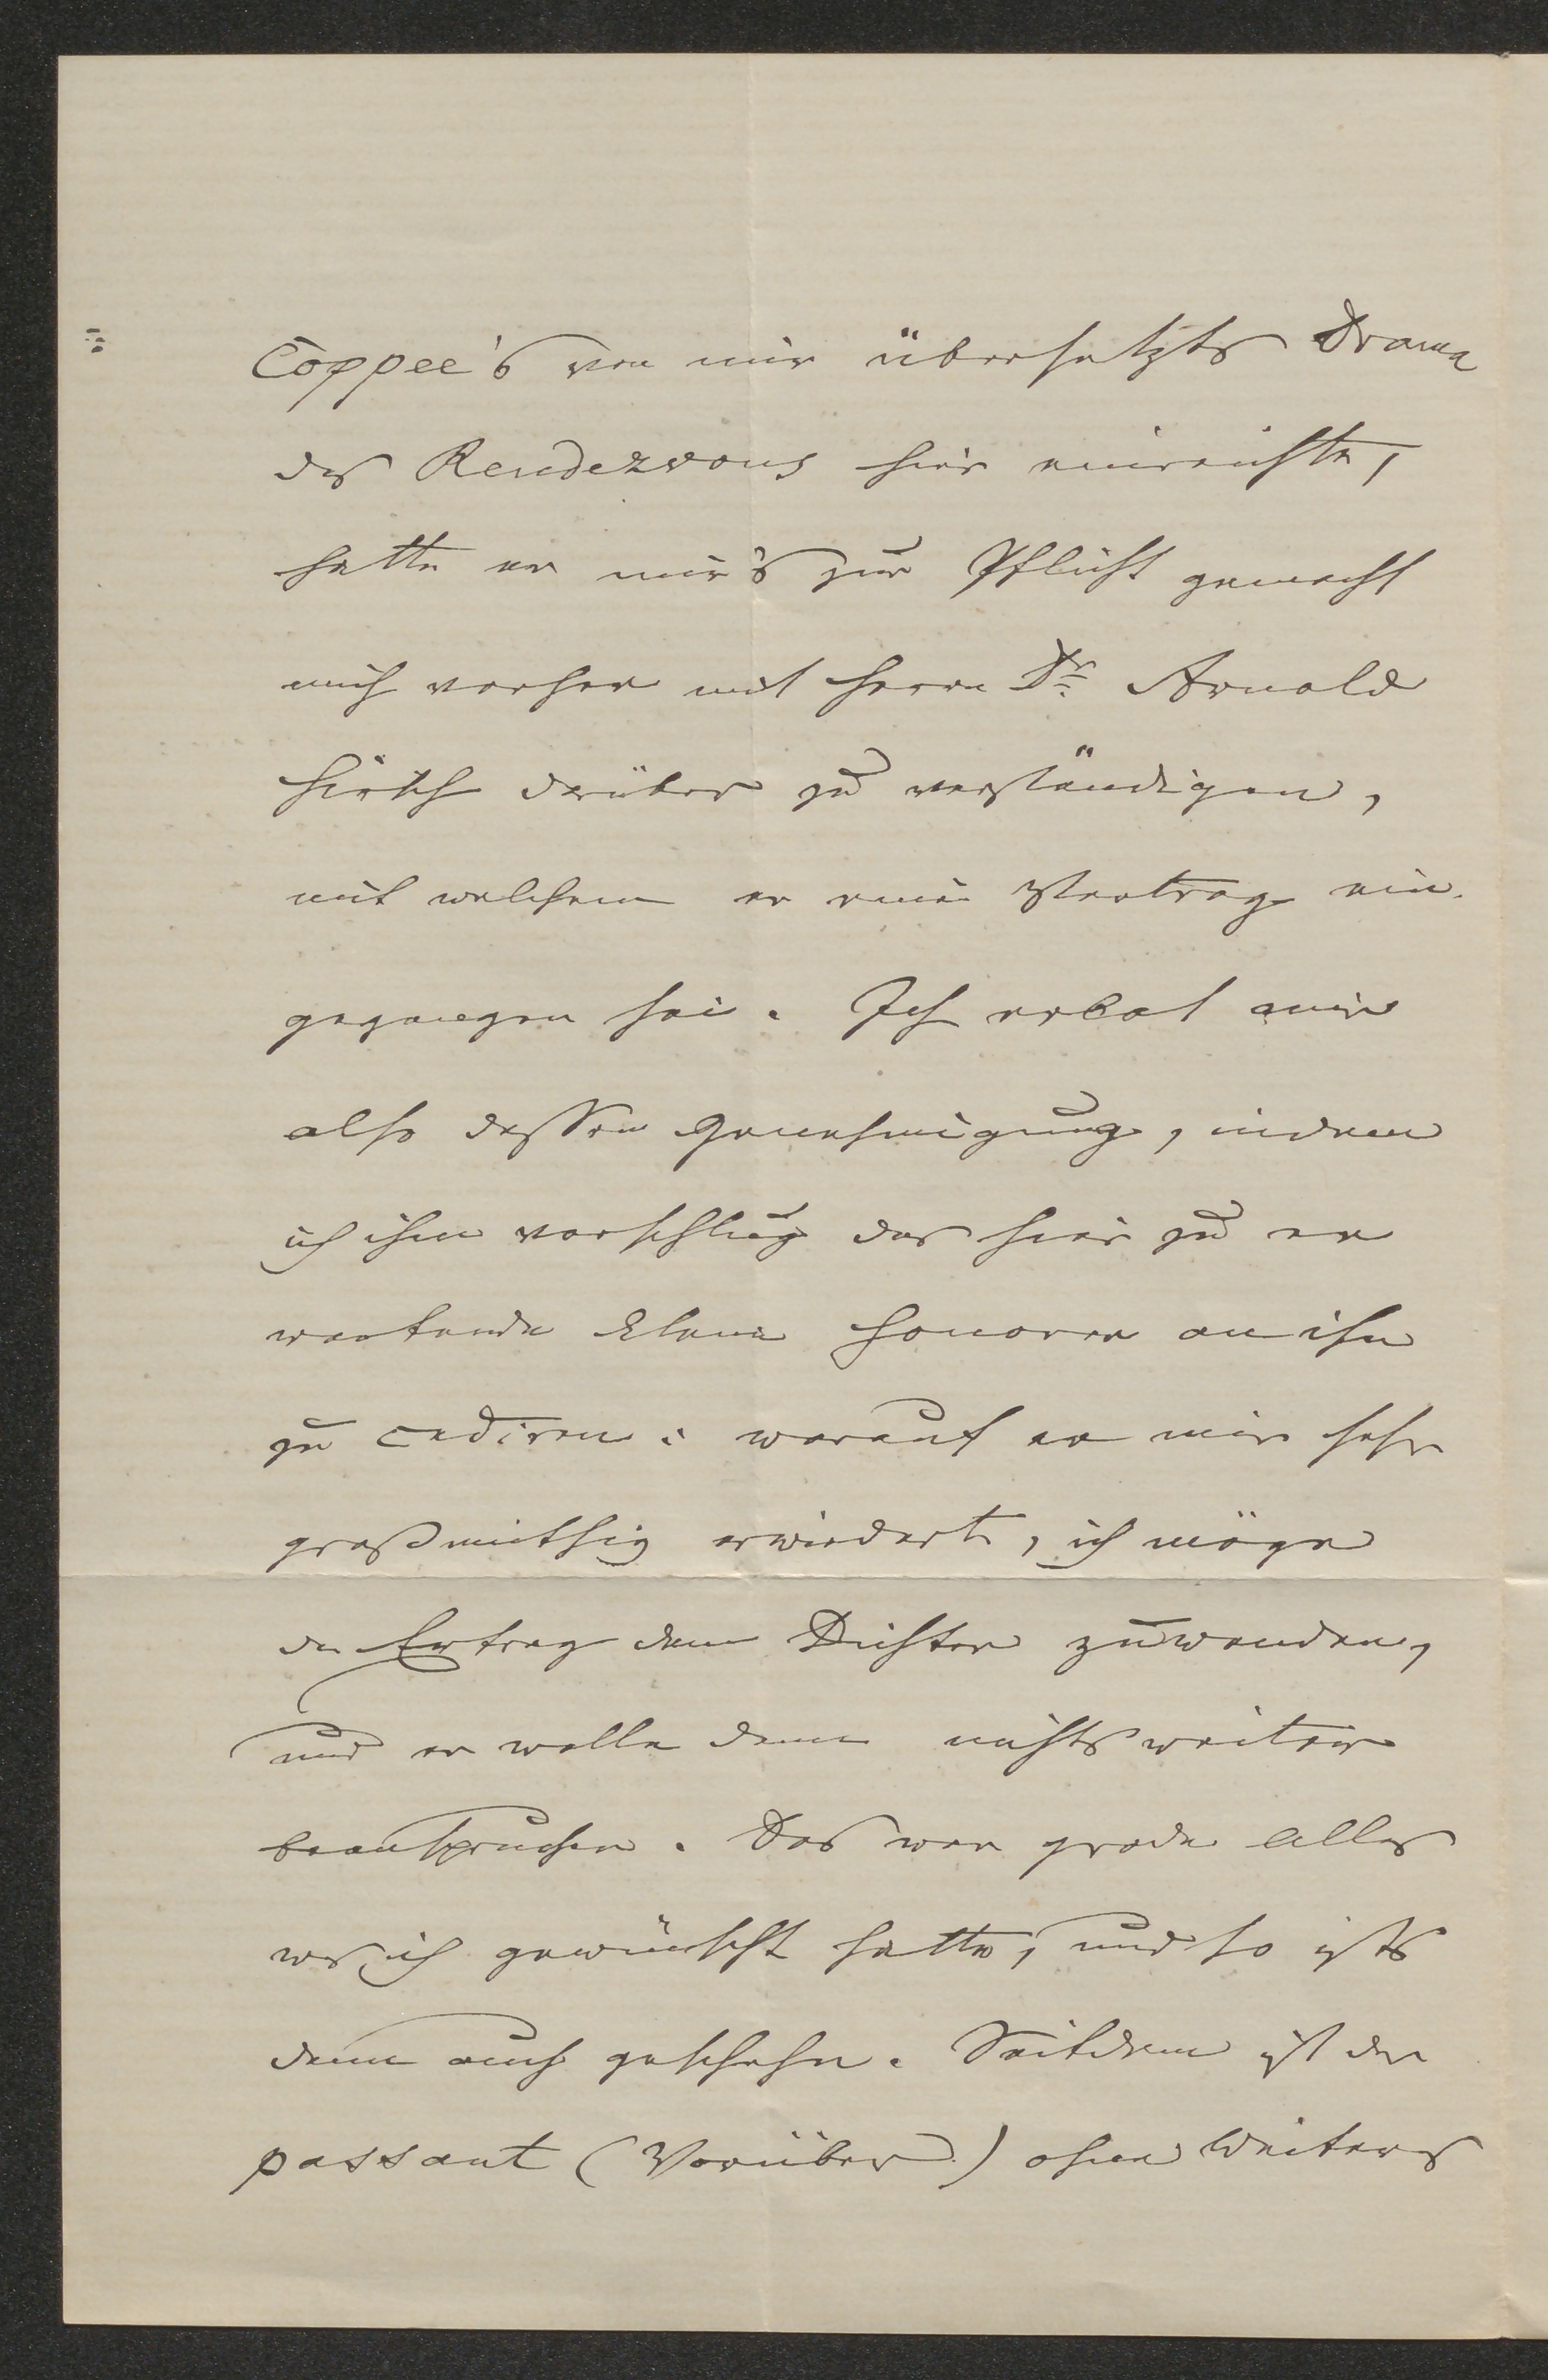 Coppee's von mir übersetztes Drama
das Rendezvous hier einreichte,
hatte er mir's zur Pflicht gemacht
mich vorher mit Herrn Dr. Arnold
Hirsch darüber zu verständigen,
mit welchem er einen Vertrag ein-
gegangen sei. Ich erbat mir
also dessen Genehmigung, indem
ich ihm vorschlug das hier zu er
wartende kleine Honorar an ihn
zu cediren: worauf er mir sehr
großmüthig erwiedert, ich möge
den Ertrag dem Dichter zuwenden,
und er wolle dann nichts weiter
beanspruchen. Das war grade alles
was ich gewünscht hatte, und so ists
denn auch geschehn. Seitdem ist der
passant (Vorüber) ohne Weiteres